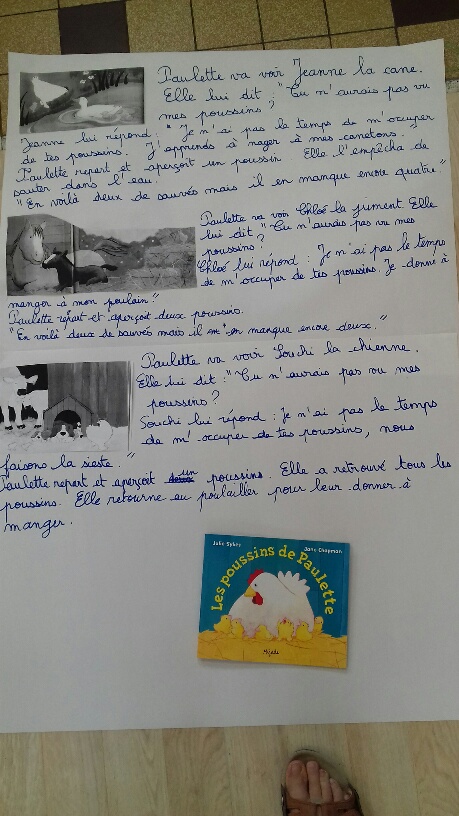 Paulette va voir Jeanne la cane.
Elle lui dit : "Tu n'aurais pas vu
mes poussins ?"
Jeanne lui répond : "Je n'ai pas le temps de m'occuper
de tes poussins. J'apprends à nager à mes canetons."
Paulette repart et aperçoit un poussin. Elle l'empêcha de
sauter dans l'eau.
"En voilà deux de sauvés mais il en manque encore quatre."
Paulette va voir Chloé la jument. Elle
lui dit "Tu n'aurais pas vu mes
poussins ?
Chloé lui répond : Je n'ai pas le temps
de m'occuper de tes poussins. Je donne à
manger à mon poulain."
Paulette repart et aperçoit deux poussins.
"En voilà deux de sauvés mais il en manque encore deux."
Paulette va voir Souchi la chienne.
Elle lui dit : "Tu n'aurais pas vu mes
poussins ?
Souchi lui répond : Je n'ai pas le temps
de m'occuper de tes poussins, nous
faisons la sieste."
Paulette repart et aperçoit un poussins. Elle a retrouvé tous les
poussins. Elle retourne au poulailler pour leur donner à
manger.
Julie Sykes Jane Chapman
Les poussins de Paulette
Mijade